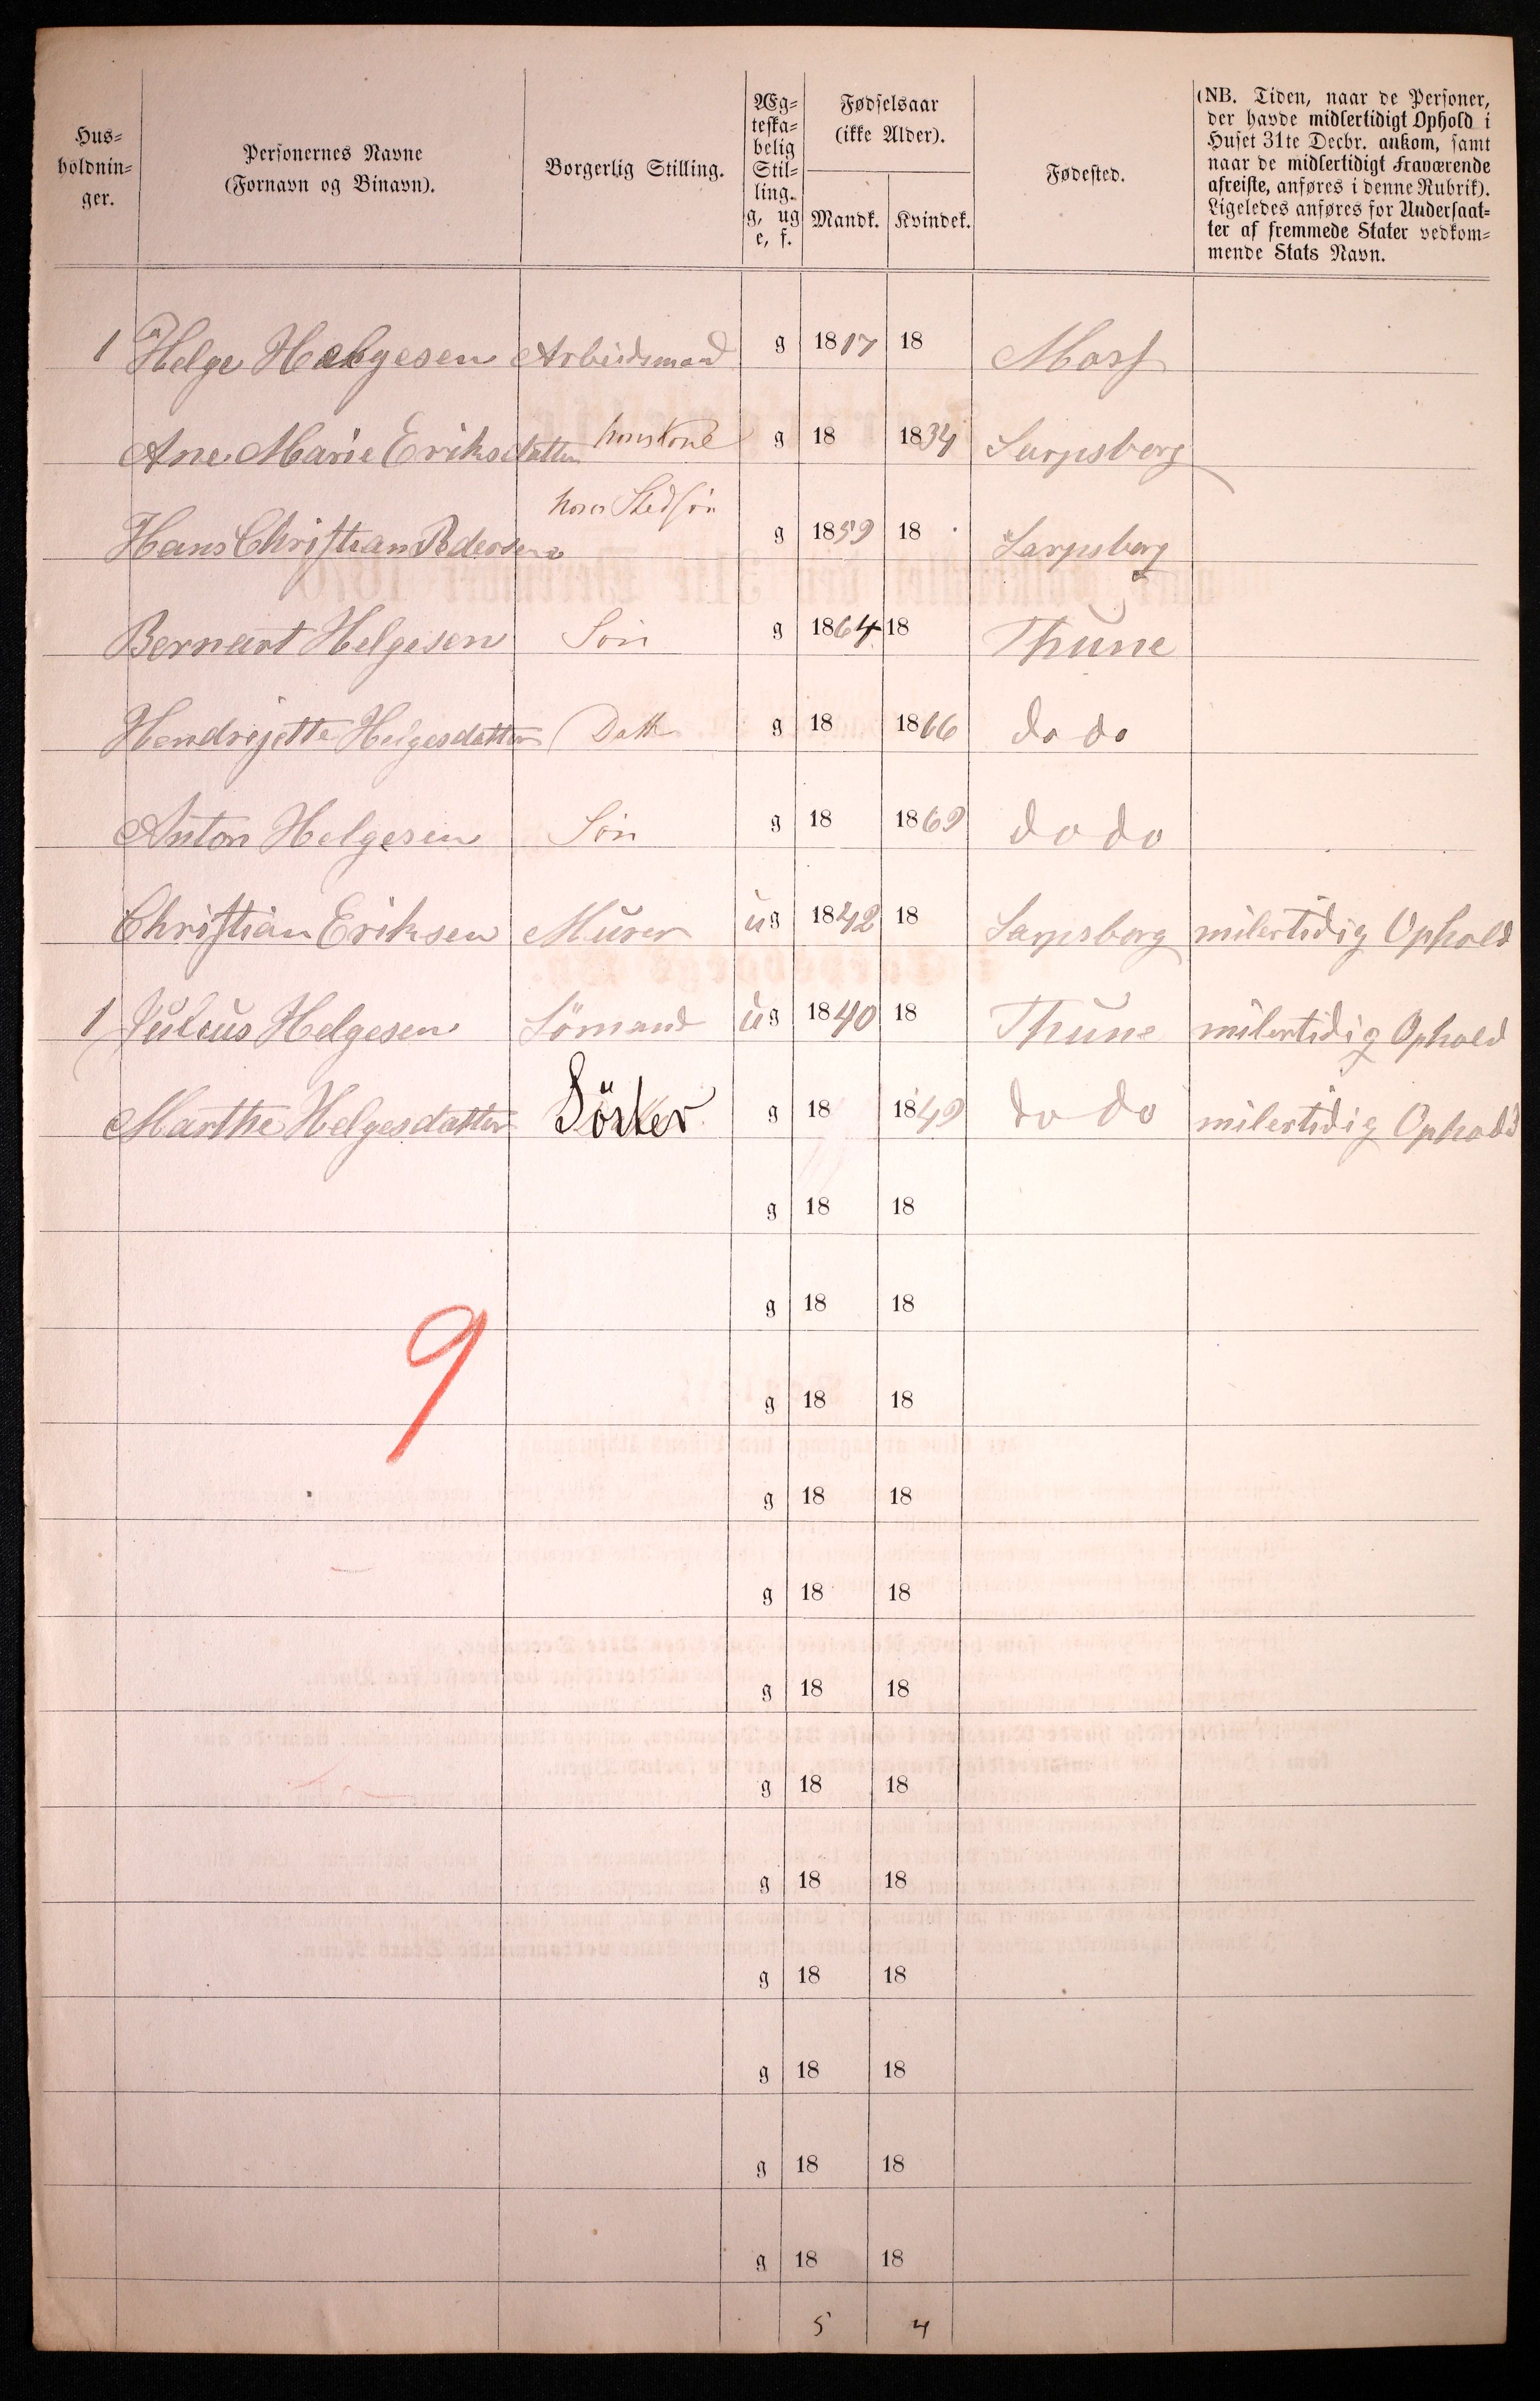 Hus-
holdnin-
ger.
Personernes Navne
(Fornavn og Binavn).
Borgerlig Stilling.
Æg-
teska-
belig
Stil-
ling.
g, ug
e, f.
Fødselsaar
(ikke Alder).
Mandk. Kvindek.
Fødested.
(NB. Tiden, naar de Personer,
der havde midlertidigt Ophold i
Huset 31te Decbr. ankom, samt
naar de midlertidigt Fraværende
afreiste, anføres i denne Rubrik).
Ligeledes anføres for Undersaat-
ter af fremmede Stater vedkom-
mende Stats Navn.
1 Helge Helgesen Arbeidsmand g 1817 18 Moss
Ane Marie Eriksdatter hans Kone g 18 1834 Sarpsborg
Hans Christian Pedersen hans Stedsön g 1859 18 Sarpsborg
Bernart Helgesen Sön g 1864 18 Thune
Hendrijette Helgesdatter Datt g 18 1866 do do
Anton Helgesen Sön g 18 1869 do do
Christian Eriksen Murer ug 1842 18 Sarpsborg milertidig Ophold
1 Julius Helgesen Sömand ug 1840 18 Thune milertidig Ophold
Marthe Helgesdatter Söster g 18 1849 do do milertidig Ophold
g 18 18
g 18 18
9
g 18 18
g 18 18
g 18 18
g 18 18
g 18 18
g 18 18
g 18 18
g 18 18
g 18 18
g 18 18
5 4